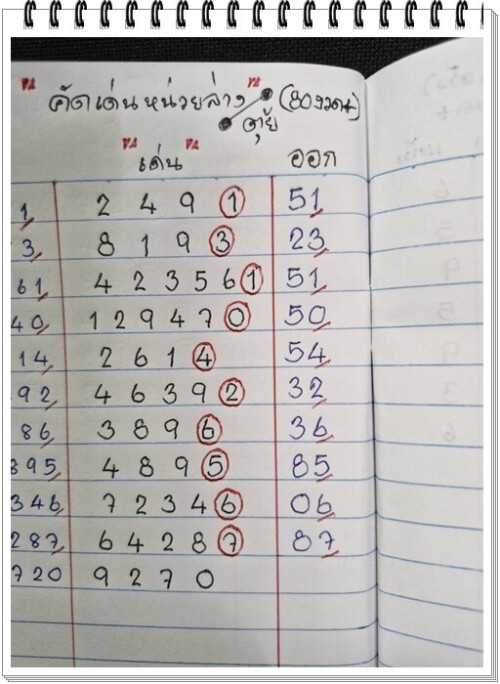 คัดเด่นหน่วยล่าง (80งวด+)
ตุ้ย
เด่น ออก
1 2 4 9 1 51
3 8 1 9 3 23
61 4 2 3 5 6 1 51
40 1 2 9 4 7 0 50
14 2 6 1 4 54
92 4 6 3 9 2 32
86 3 8 9 6 36
395 4 8 9 5 85
346 7 2 3 4 6 06
287 6 4 2 8 7 87
720 9 2 7 0